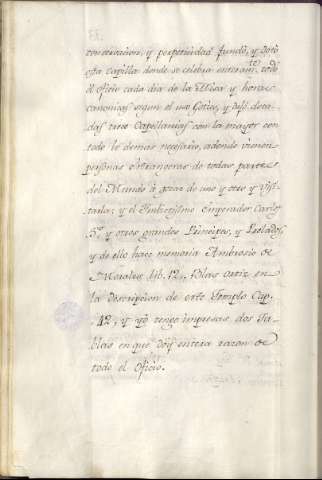 conservacion, y perpetuidad fundó, y Dotó
esta Capilla donde se celebra enteram.te todo
el oficio cada dia de la Missa y horas
canonicas segun el uso Gotico, y dejó dota-
das trece Capellanias con la mayor con
todo lo demas necesario, adonde vienen
personas extrangeras de todas partes
del Mundo á gozar de uno y otro y visi-
tarla; y el Invictissimo Emperador Carlos
5.º y otros grandes Principes, y Prelados,
y de ello hace memoria Ambrosio de
Morales lib. 12, Blas Ortiz en
la Descripcion de este Templo Cap.
42, y yo tengo impresas dos Ta-
blas en que doy entera razon de
todo el Oficio.